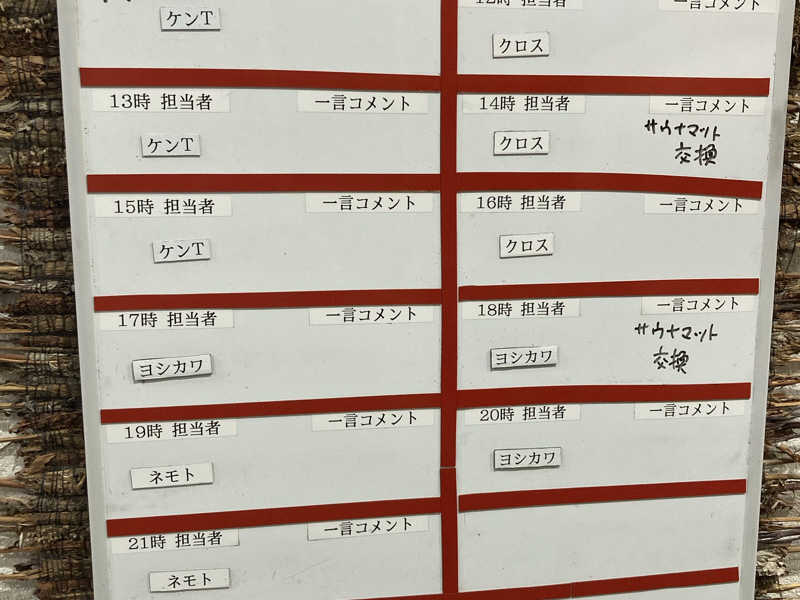 ケンT
12時 担当者 一言コメント
クロス
13時 担当者 一言コメント
ケンT
14時 担当者 一言コメント
クロス
サウナマット
交換
15時 担当者 一言コメント
ケンT
16時 担当者 一言コメント
クロス
17時 担当者 一言コメント
ヨシカワ
18時 担当者 一言コメント
ヨシカワ
サウナマット
交換
19時 担当者 一言コメント
ネモト
20時 担当者 一言コメント
ヨシカワ
21時 担当者 一言コメント
ネモト